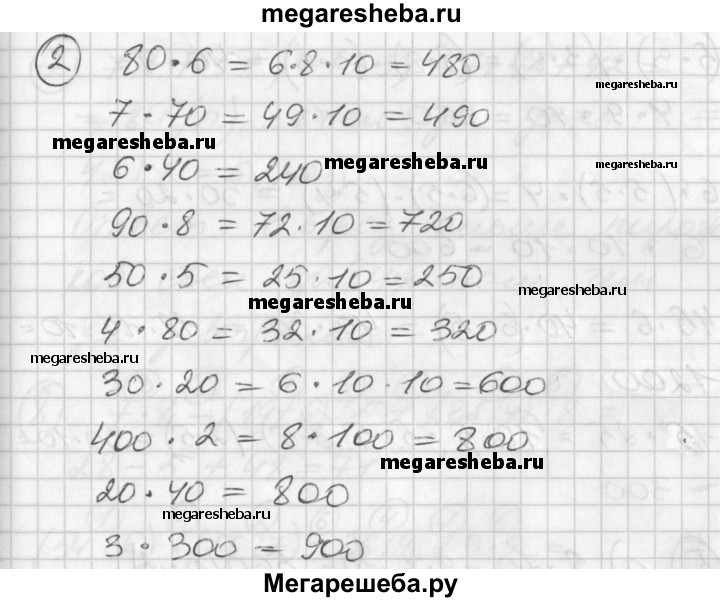 megaresheba.ru
2 80·6 = 6·8·10 = 480
megaresheba.ru
7·70 = 49·10 = 490
megaresheba.ru
6·40 = 240 megaresheba.ru megaresheba.ru
90·8 = 72·10 = 720
50·5 = 25·10 = 250 megaresheba.ru
megaresheba.ru
4·80 = 32·10 = 320
megaresheba.ru
30·20 = 6·10·10 = 600
400·2 = 8·100 = 800
megaresheba.ru
20·40 = 800
megaresheba.ru
3·300 = 900
Мегарешеба.ру